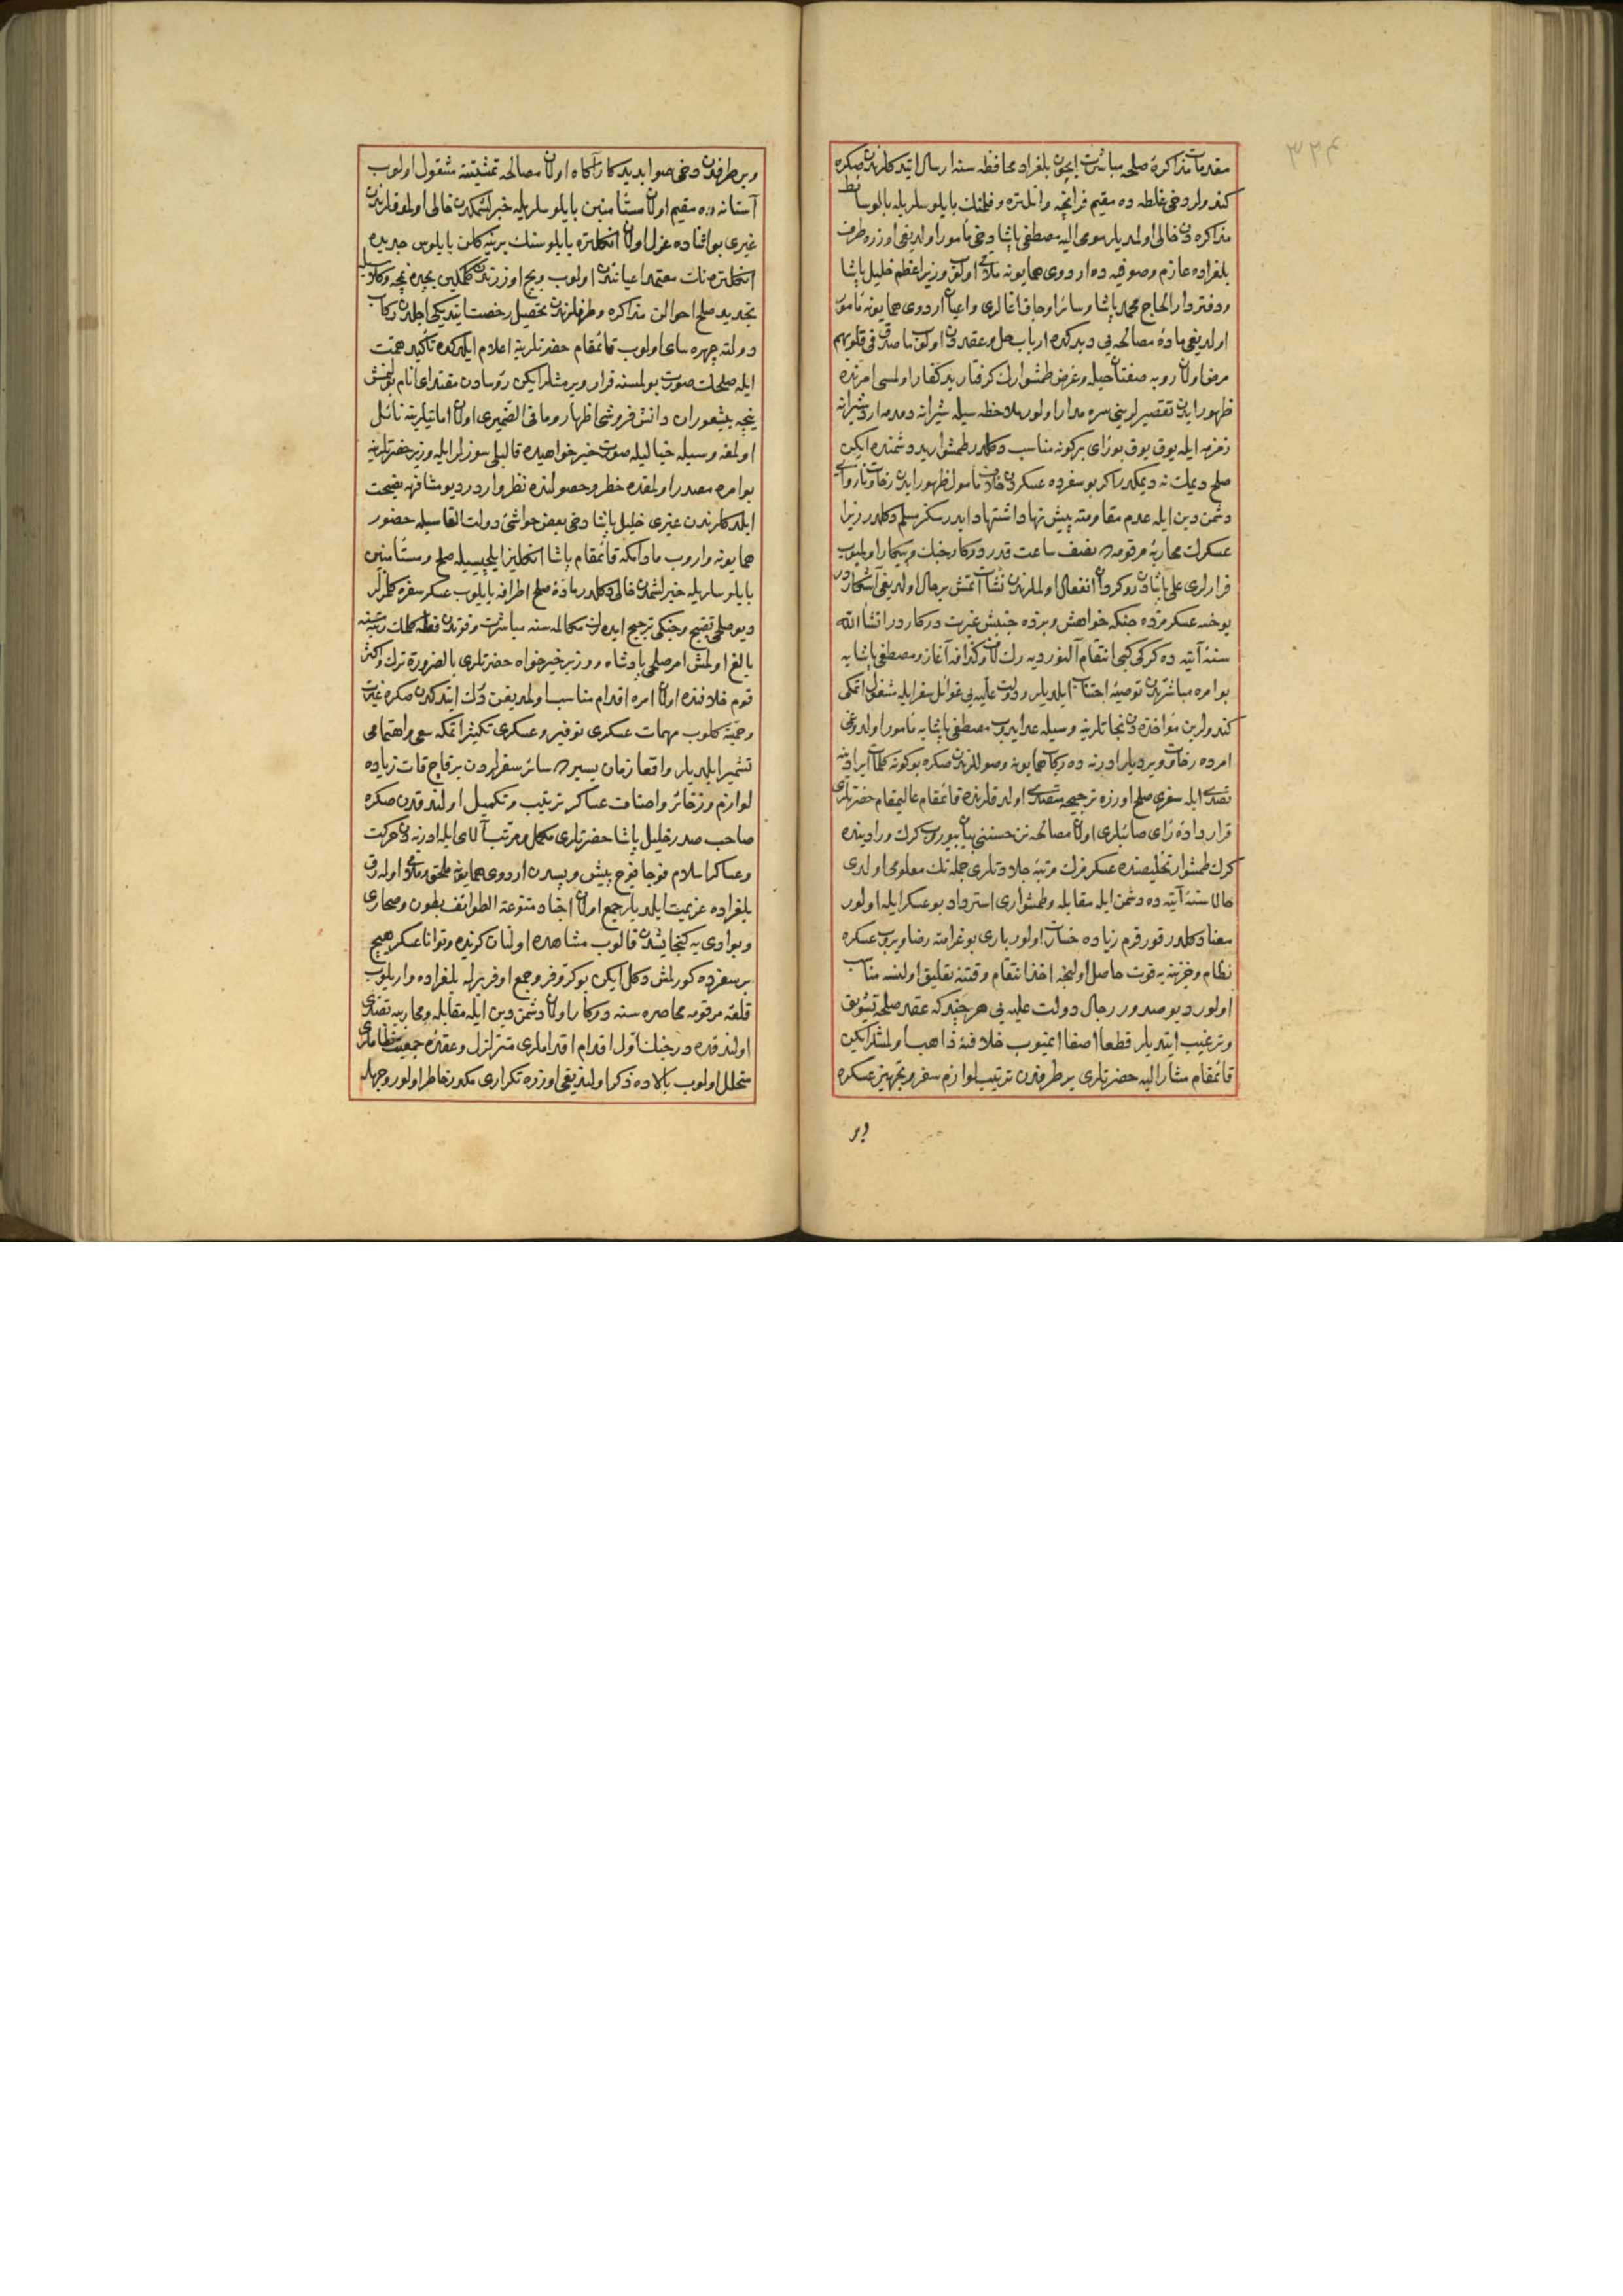 ٣٢٣
مقدمات مذاكرۀ صلحه مباشرت ايچون بلغراد محافظه سنه ارسال ايتدكلرندن صكره
كندولر دخى غلطه ده مقيم فرانچه وانكلتره وفلمنك بايلوسلريله بالوسائط
مذاكره دن خالى اولمديلر مومى اليه مصطفى پاشا دخى مأمور اولديغى اوزره طرف
بلغراده عازم وصوفيه ده اردوى همايونه ملاقى اولوب وزير اعظم خليل پاشا
ودفتردار الحاج محمد پاشا وسائر اوجاق اغالرى واعيان اردوى همايونه مأمور
اولديغى مادۀ مصالحه يى ديدكده ارباب حل وعقددن اولوب ما صدق فى قلوبهم
مرض اولان روبه صفتان حيله وغرض طمشوارك كرفتار يد كفار اولمسى امرنده
ظهور ايدن تقصيرلرينى سره مدار اولور ملاحظه سيله شيرانه دمدمه اردشيرانه
زمزمه ايله يوق يوق بو رأى بر كونه مناسب دكلدر طمشوار يد دشمنده ايكن
صلح ديمك نه ديمكدر اكر بو سفرده عسكردن خلاف مأمول ظهور ايدن رخاوت ناروای
دشمن دين ايله عدم مقاومته پيش نهاد اشتهاد ايدرسكز مسلم دكلدر زيرا
عسكرك محاربۀ مرقومه ده نصف ساعت قدر دركار جنك وپيكار اولميوب
فرارلرى على پاشادن روكردان انفعال اولملرندن نشأت اتمش بر حال اولديغى آشكاردر
يوخسه عسكرمزده جنكه خواهش وبزده جنبش غيرت دركاردر انشاء الله
سنۀ آتيه ده كركى كبى انتقام آلنور ديه رك لاف وكذافه آغاز ومصطفى پاشايه
بو امره مباشرتدن توصيۀ اجتناب ايلديلر ودولت عليه يى غوائل سفر ايله مشغول اتمكى
كندولرين مؤاخذه دن نجاتلرينه وسيله عد ايدوب مصطفى پاشايه مأمور اولدوغى
امرده رخاوت ويرديلر ادرنه ده ركاب همايونه وصوللرندن صكره بو كونه كلمات ايرادينه
تصدى ايله سفرى صلح اوزره ترجيحه متصدى اولدقلرنده قائمقام عاليمقام حضرتلرى
قرار دادۀ رأى صائبلرى اولان مصالحه نن حسننى بيان بيوروب كرك ورادينده
كرك طمشوار تخليصنده عسكرمزك مرتبۀ جلادتلرى جمله نك معلومى اولدى
حالا سنۀ آتيه ده دشمن ايله مقابله وطمشوارى استرداد بو عسكر ايله اولور
معناد دكلدر قورقرم زياده خسارت اولور بارى بو غرامته رضا ويروب عسكره
نظام وخزينه يه قوت حاصل اولنجه اخذ انتقام وقتنه تعليق اولنسه مناسب
اولور ديو صدور رجال دولت عليه يى هر چند كه عقد صلحه تشويق
وترغيب ايتديلر قطعا اصغا اتميوب خلافنه ذاهب اولمشلر ايكن
قائمقام مشار اليه حضرتلرى بر طرفدن ترتيب لوازم سفر وتجهيز عسكره
وبر
وبر طرفدن دخى صوابديد كار آكاه اولان مصالحه تمشيتنه مشغول اولوب
آستانه ده مقيم اولان مستأمنين بايلوسلريله خبرلشمكدن خالى اولموقلرندن
غيرى بو اثناده عزل اولان انكلتره بايلوسنك يرينه كلن بايلوس جديده
انكلتره نك معتمد اعياننده اولوب وبج اوزرندن كلمكين بچه ده نمچه وكلاسيله
تجديد صلح احوالن مذاكره وطرفلرندن تحصيل رخصت ايتديكى اجلدن ركاب
دولته چهره ساى اولوب قائمقام حضرتلرينه اعلام ايلدكده تأكيد همت
ايله صلحك صورت بولمسنه قرار ويرمشلر ايكن رؤسادن مقتداى انام بولنمش
نيچه بيشعوران دانش فروشى اظهار وما فى الضميرى اولان امانيلرينه نائل
اولمغه وسيله خياليله صورت خير خواهيده قالبلى سوزلر ايله وزير حضرتلرينه
بو امره مصدر اولمقده خطر وحصولنده نظر واردر ديو مشافهه نصيحت
ايلدكلرندن غيرى خليل پاشا دخى بعض حواشئ دولت القاسيله حضور
همايونه واروب مادامكه قائمقام پاشا انكليز ايلچيسيله صلح ومستأمنين
بايلوسلريله خبرلشمدن خالى دكلدر مادۀ صلح اطرافه يايلوب عسكر سفره كلمزلر
ديو صلحى تقبيح وجنكى ترجيح ايدرك مكالمه سنه مباشرت وفوتدن قطع كلمات رتبه سنه
بالغ اولمش امر صلحى پادشاه ووزير خيرخواه حضرتلرى بالضرورة ترك واكثر
قوم خلافنده اولان امره اقدام مناسب اولمديغن درك ايتدكدن صكره غيرت
وحميته كلوب مهمات عسكرى توفير وعسكرى تكثير اتمكه سعى واهتمامى
تشمير ايلديلر واقعا زمان يسيرده سائر سفرلردن بر قاچ قات زياده
لوازم وذخائر واصناف عساكر ترتيب وتكميل اولندقدن صكره
صاحب صدر خليل پاشا حضرتلرى مكمل ومرتب آلاى ايله ادرنه دن حركت
وعساكر اسلام فوجا فوج پيش وپسدن اردوى همايونه ملحق وملاقى اولەرق
بلغراده عزيمت ايلديلر جمع اولان اجناد متنوعة الطوائف بطون وصحارى
وبوادى يه كنجايشدن قالوب مشاهده اولنان كزيده وتوانا عسكر هيچ
بر سفرده كورلمش دكل ايكن بو كر وفر وجمع اوفر برله بلغراده واريلوب
قلعۀ مرقومه محاصره سنه دركار اولان دشمن دين ايله مقابله ومحاربه يه تصدى
اولندقده درجنك اول اقدام اقداملرى متزلزل وعقدۀ جمعيت نظاملرى
متحلل اولوب بالاده ذكر اولنديغى اوزره تكرارى مكدر خاطر اولور وجهله